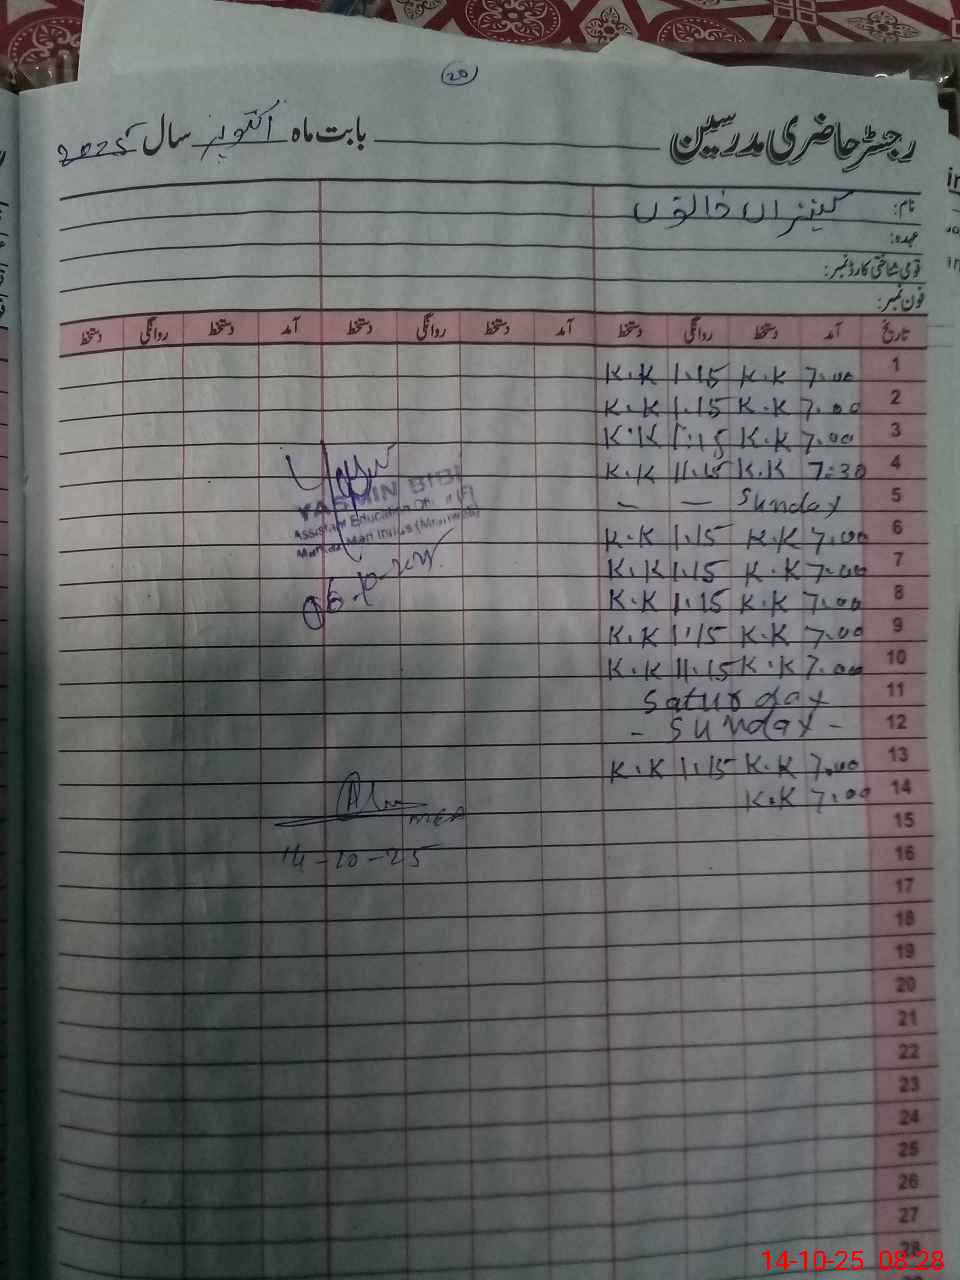 20
رجسٹر حاضری مدرسین بابت ماہ اکتوبر سال 2025
نام: کنیزاں خاتون
عہدہ:
قومی شناختی کارڈ نمبر:
فون نمبر:
تاریخ آمد دستخط روانگی دستخط آمد دستخط روانگی دستخط آمد دستخط روانگی دستخط
1 7.00 K.K 1.15 K.K
2 7.00 K.K 1.15 K.K
3 7.00 K.K 1:15 K.K
4 7:30 K.K 11.15 K.K
5 Sunday — —
6 7.00 K.K 1.15 K.K
7 7.00 K.K 1.15 K.K
8 7.00 K.K 1.15 K.K
9 7.00 K.K 1.15 K.K
10 7.00 K.K 11.15 K.K
11 Saturday
12 - Sunday -
13 7.00 K.K 1.15 K.K
14 7.00 K.K
15
16
17
18
19
20
21
22
23
24
25
26
27
28
YASMIN BIBI
Assistant Education (F)
14-10-25
14-10-25 08:28